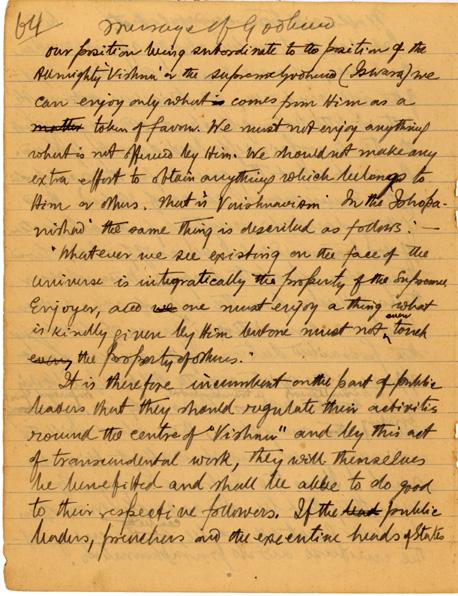 64 Message of Godhead
our position being subordinate to the position of the
Almighty Vishnu or the supreme Godhead (Iswara) we
can enjoy only what is comes from Him as a
matter token of favour. We must not enjoy anything
what is not offered by Him. We should not make any
extra effort to obtain anything which belongs to
Him or others. That is 'Vaishnavism' In the 'Ishopa-
nishad' the same thing is described as follows :—
"Whatever we see existing on the face of the
universe is integratically the property of the Supreme
Enjoyer, and we one must enjoy a thing what
is kindly given by Him but one must not even touch
every the Property of others."
It is therefore incumbent on the part of public
leaders that they should regulate their activities
round the centre of "Vishnu" and by this act
of transcendental work, they will themselves
be benefitted and shall be able to do good
to their respective followers. If the lead public
leaders, preachers and the executive heads of States